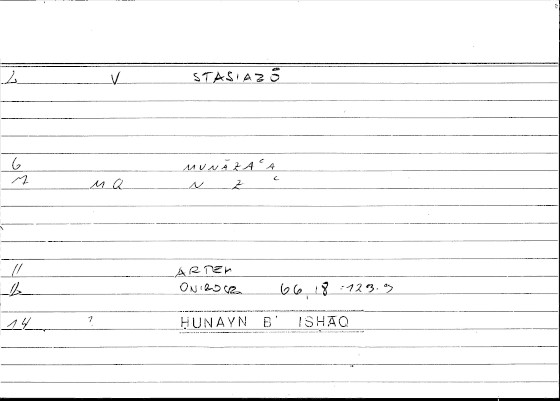 2 V STASIAZŌ
6 MUNĀZAʿA
7 MQ N Z ʿ
11 ARTEM
12 ONIROCR 66,18 = 123.9
14 ? HUNAYN B' ISHĀQ